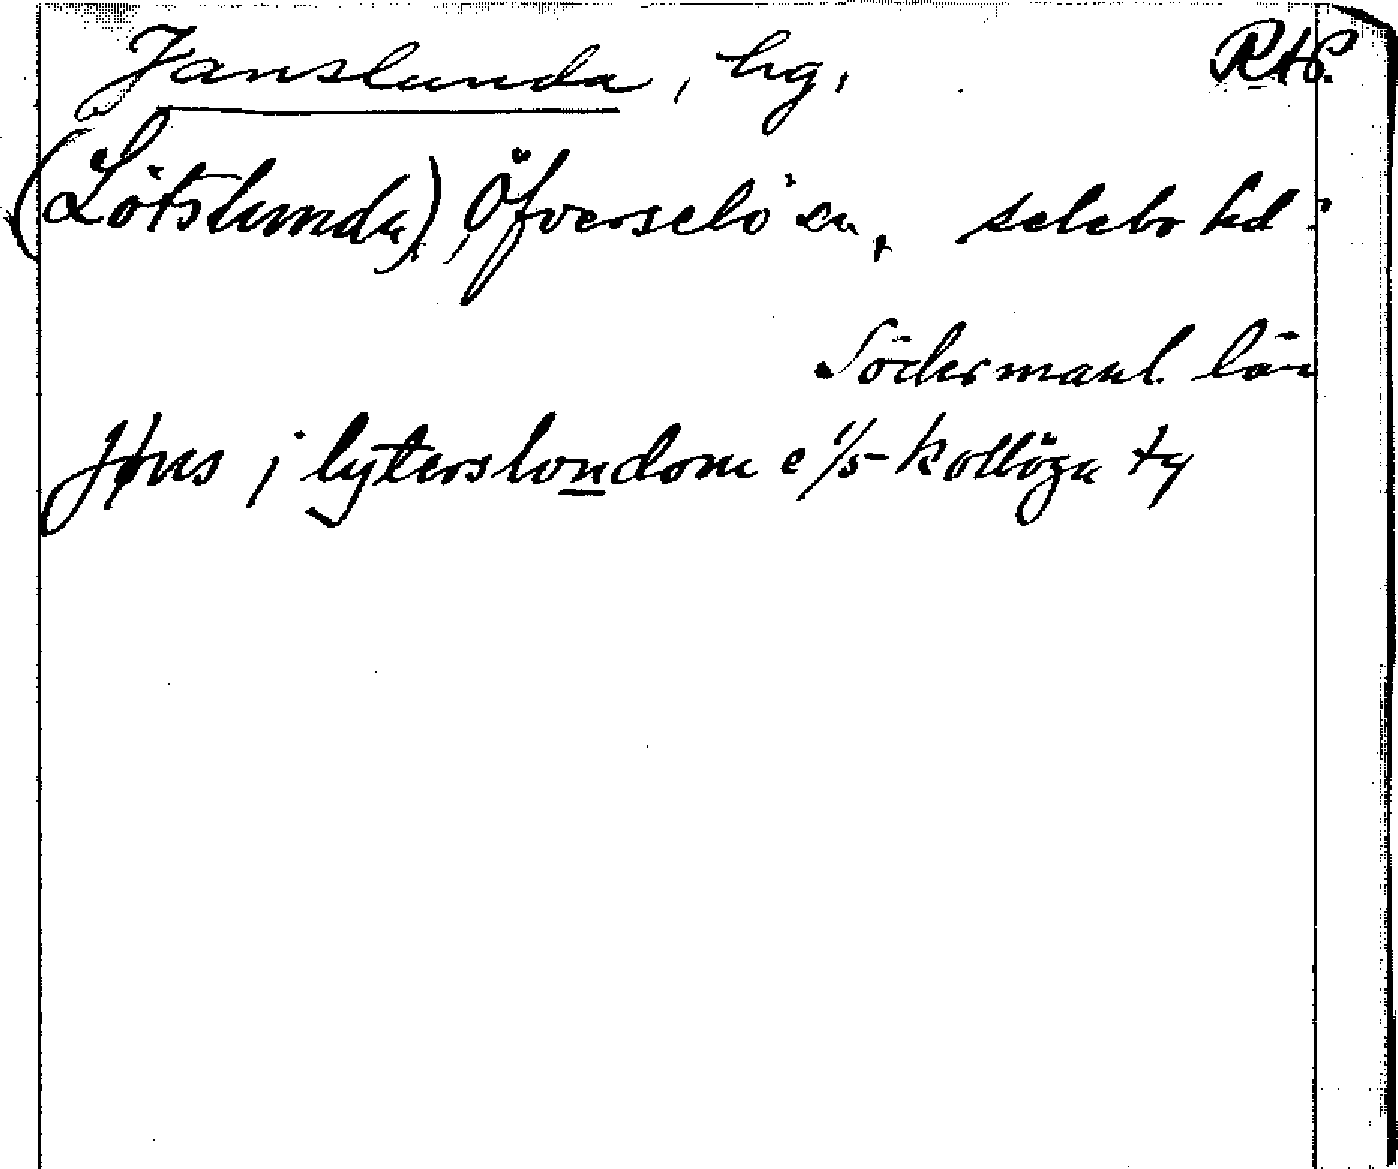 Janslunda, hg.
(Lötslunda), Öfverselö sn, Selebo hd
Södermanl. län
Jöns i lyterslondom e 1/5 kollögx ty